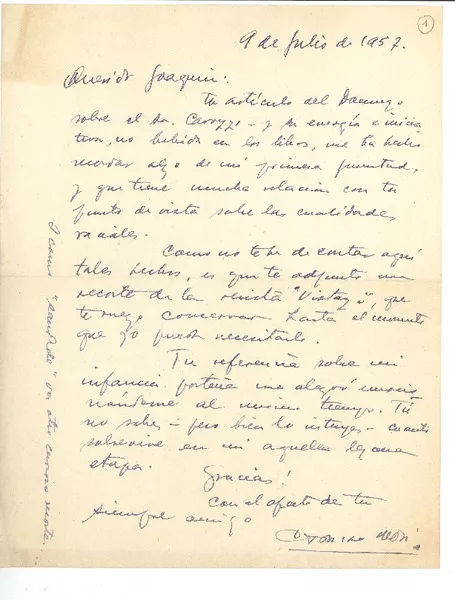 1
9 de Julio de 1957.
Querido Joaquín:
Tu artículo del Domingo
sobre el Dr. Carozzi - y su energía e inicia
tiva, no bebida en los libros, me ha hecho
recordar algo de mi primera juventud,
y que tiene mucha relación con tu
punto de vista sobre las cualidades
raciales.
Como no te he de contar aquí
tales hechos, es que te adjunto un
recorte de la revista "Vistazo", que
te ruego conservar hasta el momento
que yo pueda necesitarlo.
Tu referencia sobre mi
infancia porteña me alegró emocio
nándome al mismo tiempo. Tú
no sabes - pero bien lo intuyes - cuanto
sobrevive en mí aquella lejana
etapa.
Gracias!
Con el afecto de tu
siempre amigo
Y como va otro curioso recorte.